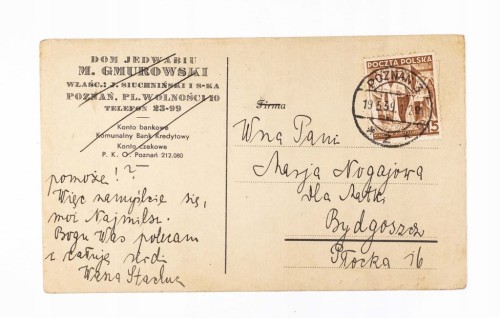 DOM JEDWABIU
M. GMUROWSKI
WŁAŚC.: J. SIUCHNIŃSKI I S-KA
POZNAŃ, PL. WOLNOŚCI 10
TELEFON 23-99
Konto bankowe
Komunalny Bank Kredytowy
Konto czekowe
P. K. O. Poznań 212.080
pomoże!?
Więc namyślcie się,
moi Najmilsi.
Bogu Was polecam
i całuję
Wasza
POCZTA POLSKA
15
POZNAŃ
Firma
Wna Pani
Marja Nogajowa
dla Matki
Bydgoszcz
Płocka 16